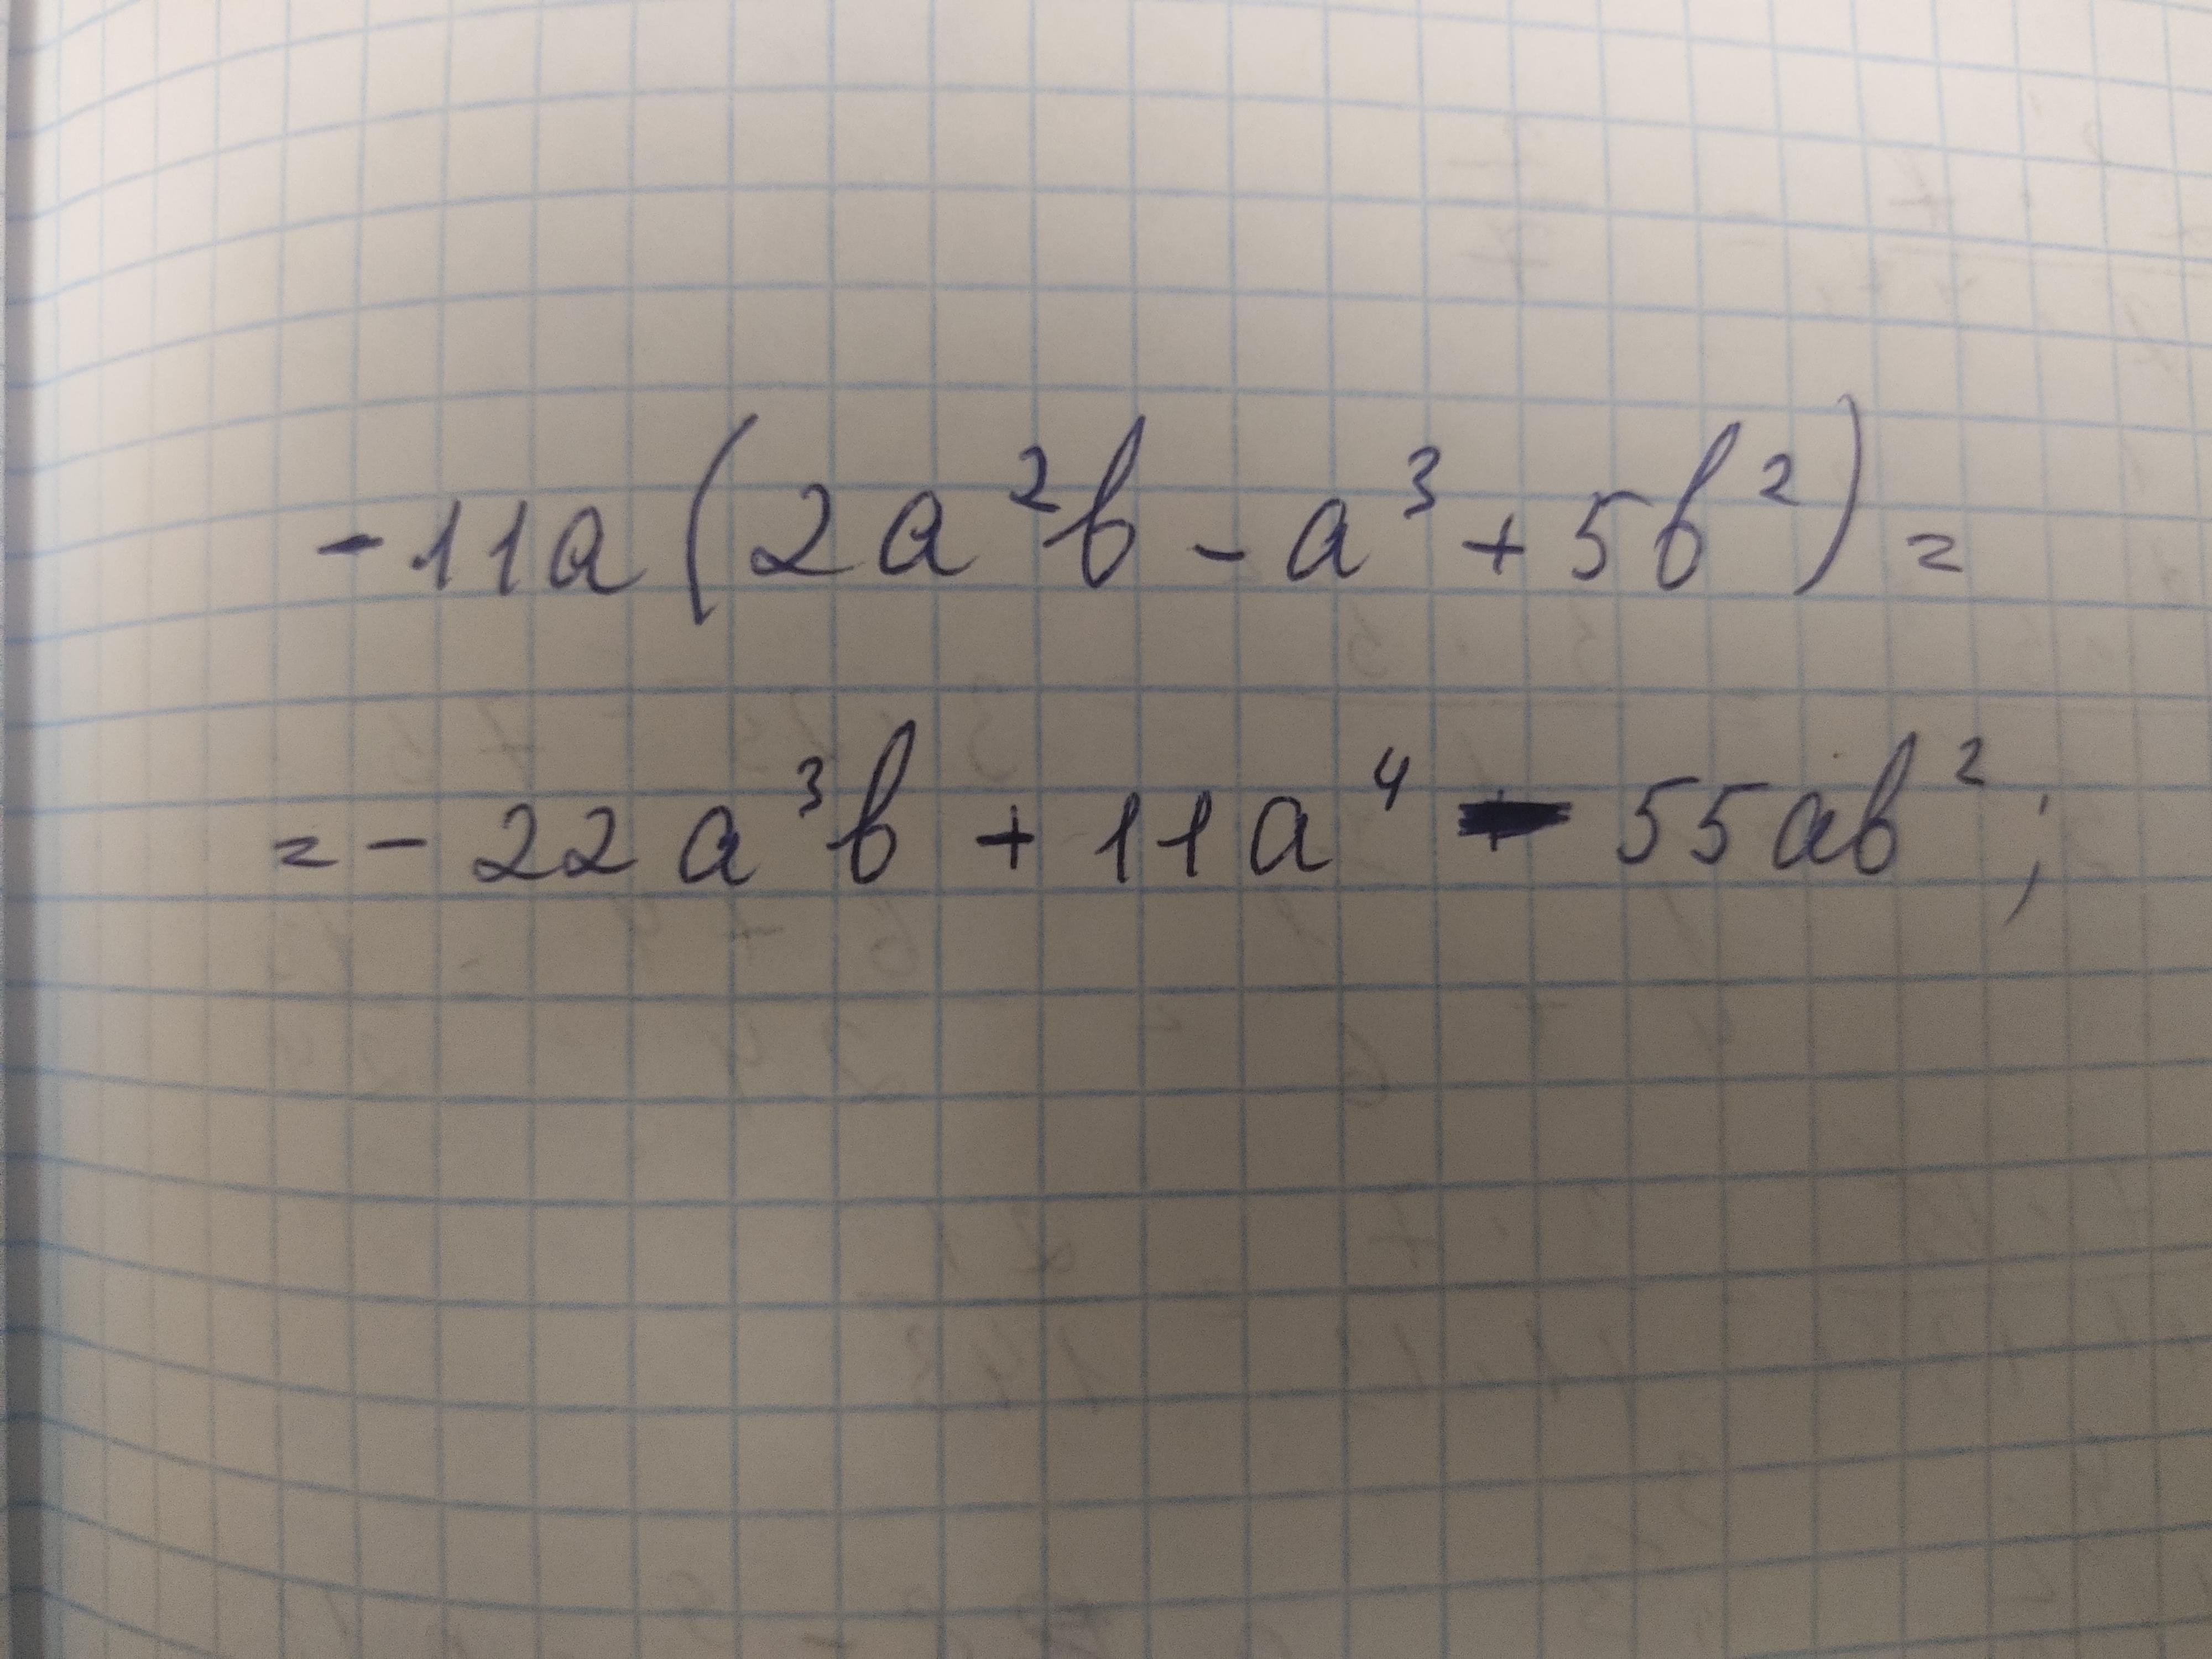 -11a(2a²b - a³ + 5b²) =
= - 22a³b + 11a⁴ - 55ab²;